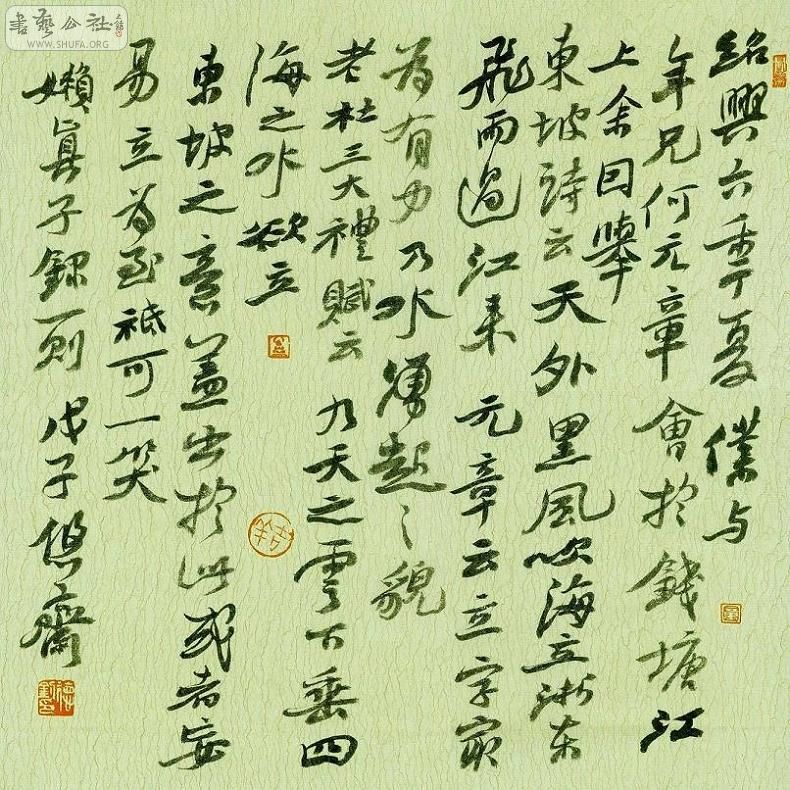 書藝公社
WWW.SHUFA.ORG
紹興六年夏僕与
年兄何元章會於錢塘江
上余因舉
東坡詩云天外黑風吹海立浙东
飛雨過江来元章云立字最
為有力乃水湧起之貌
老杜三大禮賦云九天之雲下垂四
海之水欲立
東坡之意盖出於此或者妄
易立为至祗可一笑
嬾真子錄一則戊子悠齋